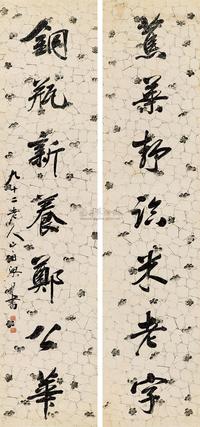 蕉葉静臨米老字
銅瓶新養鄭公華
九十二老人山舟梁同書